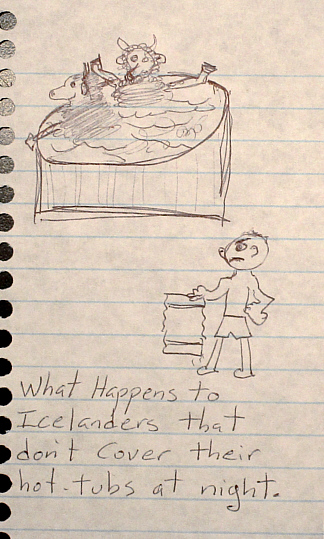 What Happens to
Icelanders that
don't Cover their
hot-tubs at night.